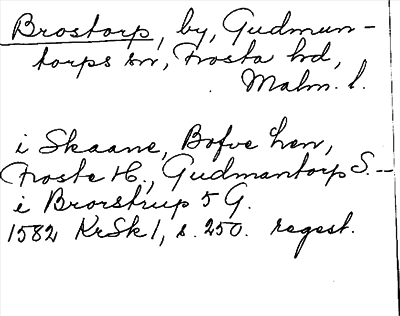 Brostorp, by, Gudmun-
torps sn, Frosta hd,
Malm. l.
i Skaane, Bosve Len,
Froste H., Gudmantorp S. --
i Brorstrup 5 G.
1582 KrSk 1, s. 250. regest.